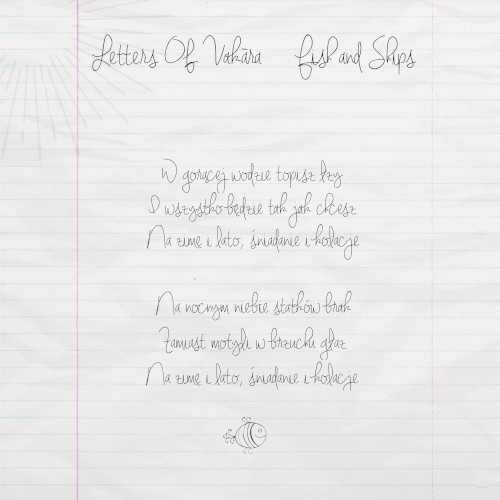 Letters Of Vakāra Fish and Ships
W gorącej wodzie topisz łzy
I wszystko będzie tak jak chcesz
Na zimę i lato, śniadanie i kolację
Na nocnym niebie statków brak
Zamiast motyli w brzuchu głaz
Na zimę i lato, śniadanie i kolację